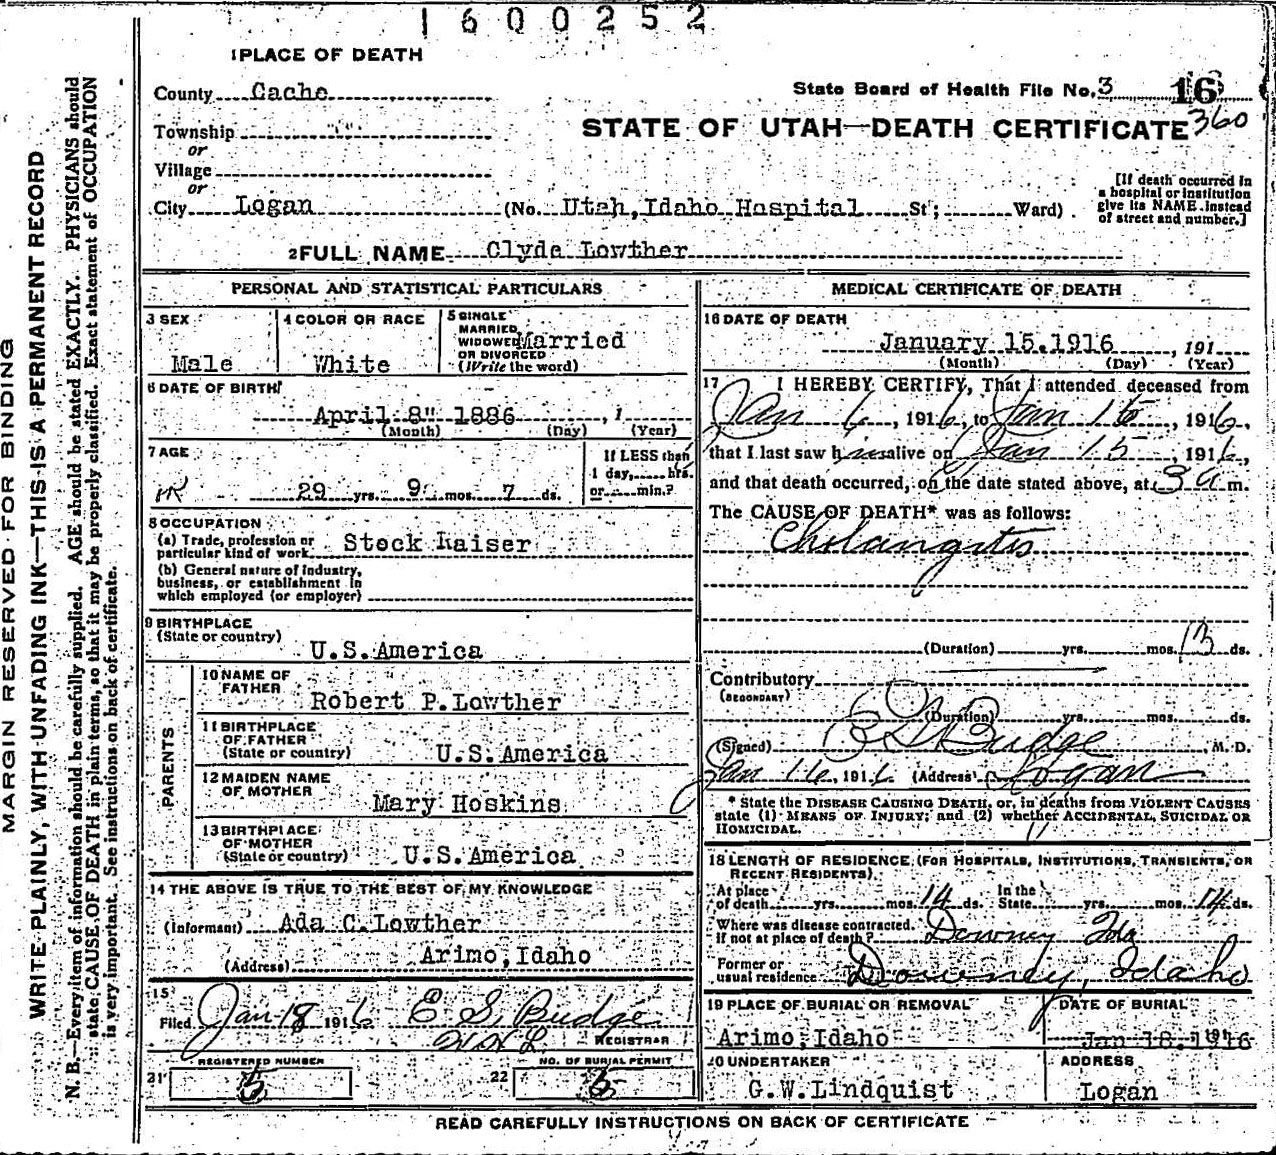 1600252
1 PLACE OF DEATH
County Cache
State Board of Health File No. 3 16
Township "
STATE OF UTAH—DEATH CERTIFICATE 360
or
Village
or
City Logan (No. Utah, Idaho Hospital St; Ward)
[If death occurred in a hospital or institution give its NAME instead of street and number.]
2 FULL NAME Clyde Lowther
PERSONAL AND STATISTICAL PARTICULARS
3 SEX Male
4 COLOR OR RACE White
5 SINGLE MARRIED WIDOWED OR DIVORCED (Write the word) Married
6 DATE OF BIRTH
April 8" 1886, 1
(Month) (Day) (Year)
7 AGE
29 yrs. 9 mos. 7 ds.
If LESS than 1 day, hrs. or min.?
8 OCCUPATION
(a) Trade, profession or particular kind of work Stock Raiser
(b) General nature of industry, business, or establishment in which employed (or employer)
9 BIRTHPLACE
(State or country) U.S.America
PARENTS
10 NAME OF FATHER Robert P.Lowther
11 BIRTHPLACE OF FATHER (State or country) U.S.America
12 MAIDEN NAME OF MOTHER Mary Hoskins
13 BIRTHPLACE OF MOTHER (State or country) U.S.America
14 THE ABOVE IS TRUE TO THE BEST OF MY KNOWLEDGE
(Informant) Ada C.Lowther
(Address) Arimo, Idaho
15
Filed Jan 18 1916 E S. Budge
REGISTRAR
21 REGISTERED NUMBER 5
22 NO. OF BURIAL PERMIT 5
MEDICAL CERTIFICATE OF DEATH
16 DATE OF DEATH
January 15.1916, 191
(Month) (Day) (Year)
17 I HEREBY CERTIFY, That I attended deceased from
Jan 6, 1916, to Jan 15, 1916,
that I last saw him alive on Jan 15, 1916,
and that death occurred, on the date stated above, at 3 a m.
The CAUSE OF DEATH* was as follows:
Cholangitis
(Duration) yrs. mos. 13 ds.
Contributory
(SECONDARY)
(Duration) yrs. mos. ds.
(Signed) Budge M. D.
Jan 16, 1916 (Address) Logan
* State the DISEASE CAUSING DEATH, or, in deaths from VIOLENT CAUSES
state (1) MEANS OF INJURY; and (2) whether ACCIDENTAL, SUICIDAL OR
HOMICIDAL.
18 LENGTH OF RESIDENCE (FOR HOSPITALS, INSTITUTIONS, TRANSIENTS, OR
RECENT RESIDENTS)
At place of death yrs. mos. 14 ds. In the State yrs. mos. 14 ds.
Where was disease contracted, if not at place of death? Downey Ida
Former or usual residence Downey, Idaho
19 PLACE OF BURIAL OR REMOVAL Arimo, Idaho
DATE OF BURIAL Jan 18, 1916 191
20 UNDERTAKER G.W.Lindquist
ADDRESS Logan
READ CAREFULLY INSTRUCTIONS ON BACK OF CERTIFICATE
MARGIN RESERVED FOR BINDING
WRITE PLAINLY, WITH UNFADING INK—THIS IS A PERMANENT RECORD
N. B.—Every item of information should be carefully supplied. AGE should be stated EXACTLY. PHYSICIANS should
state CAUSE OF DEATH in plain terms, so that it may be properly classified. Exact statement of OCCUPATION
is very important. See instructions on back of certificate.